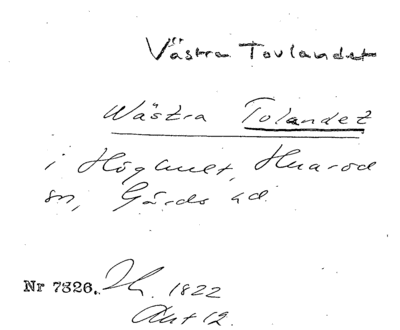 Västra Tovlandet
Wästra Tolandet
i Höghult, Huaröd
sn, Gärds hd.
Nr 7326. Lh. 1822
Akt 12.